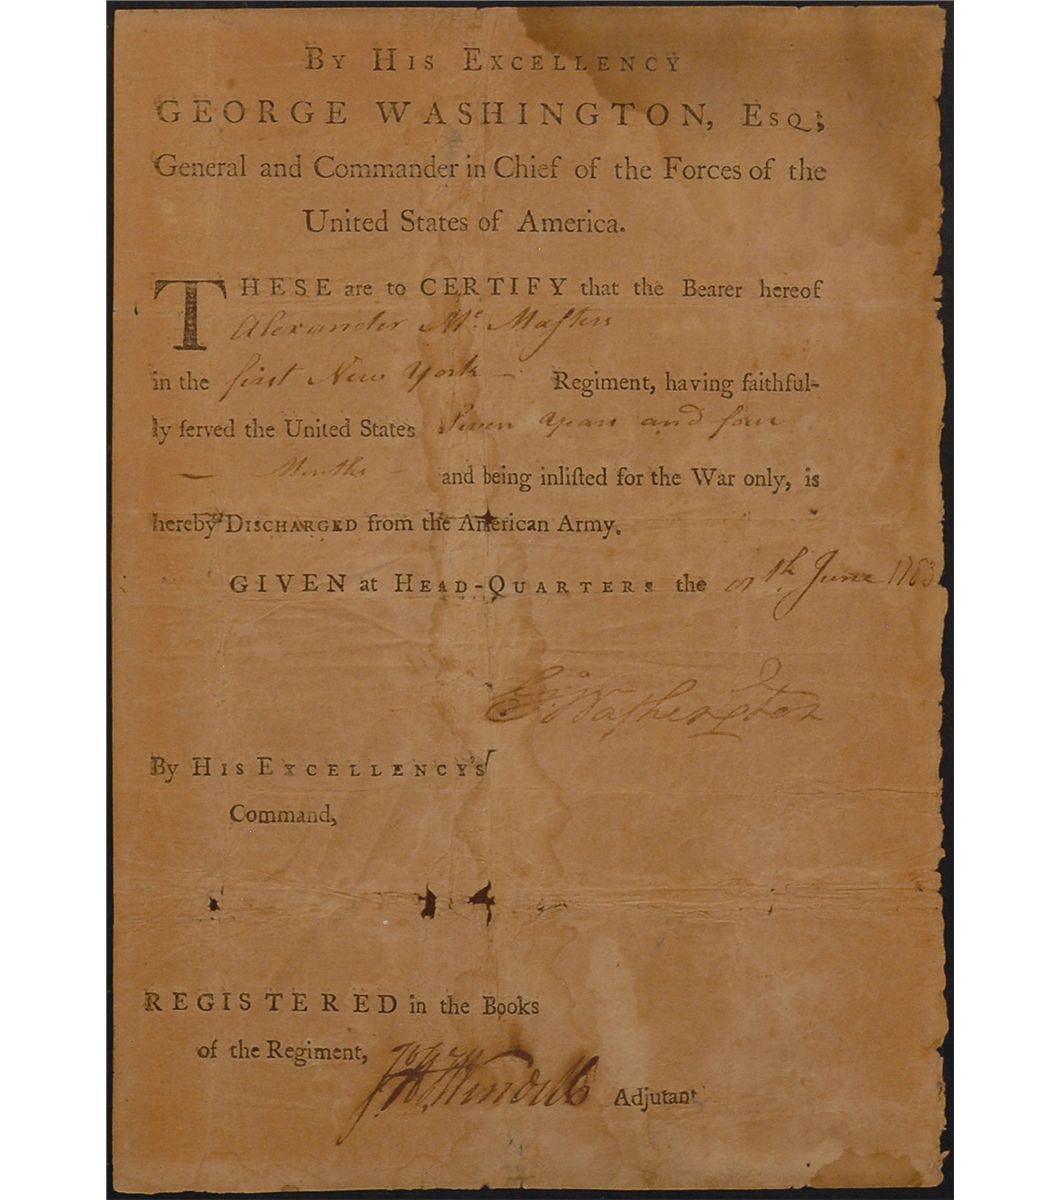 BY HIS EXCELLENCY
GEORGE WASHINGTON, ESQ;
General and Commander in Chief of the Forces of the
United States of America.
THESE are to CERTIFY that the Bearer hereof
Alexander Mc. Maſters
in the first New York - Regiment, having faithful-
ly ſerved the United States Seven Years and four
— Months - and being inliſted for the War only, is
hereby DISCHARGED from the American Army.
GIVEN at HEAD-QUARTERS the June 1783
G:Washington
By HIS EXCELLENCY'S
Command,
REGISTERED in the Books
of the Regiment,
Wendell Adjutant